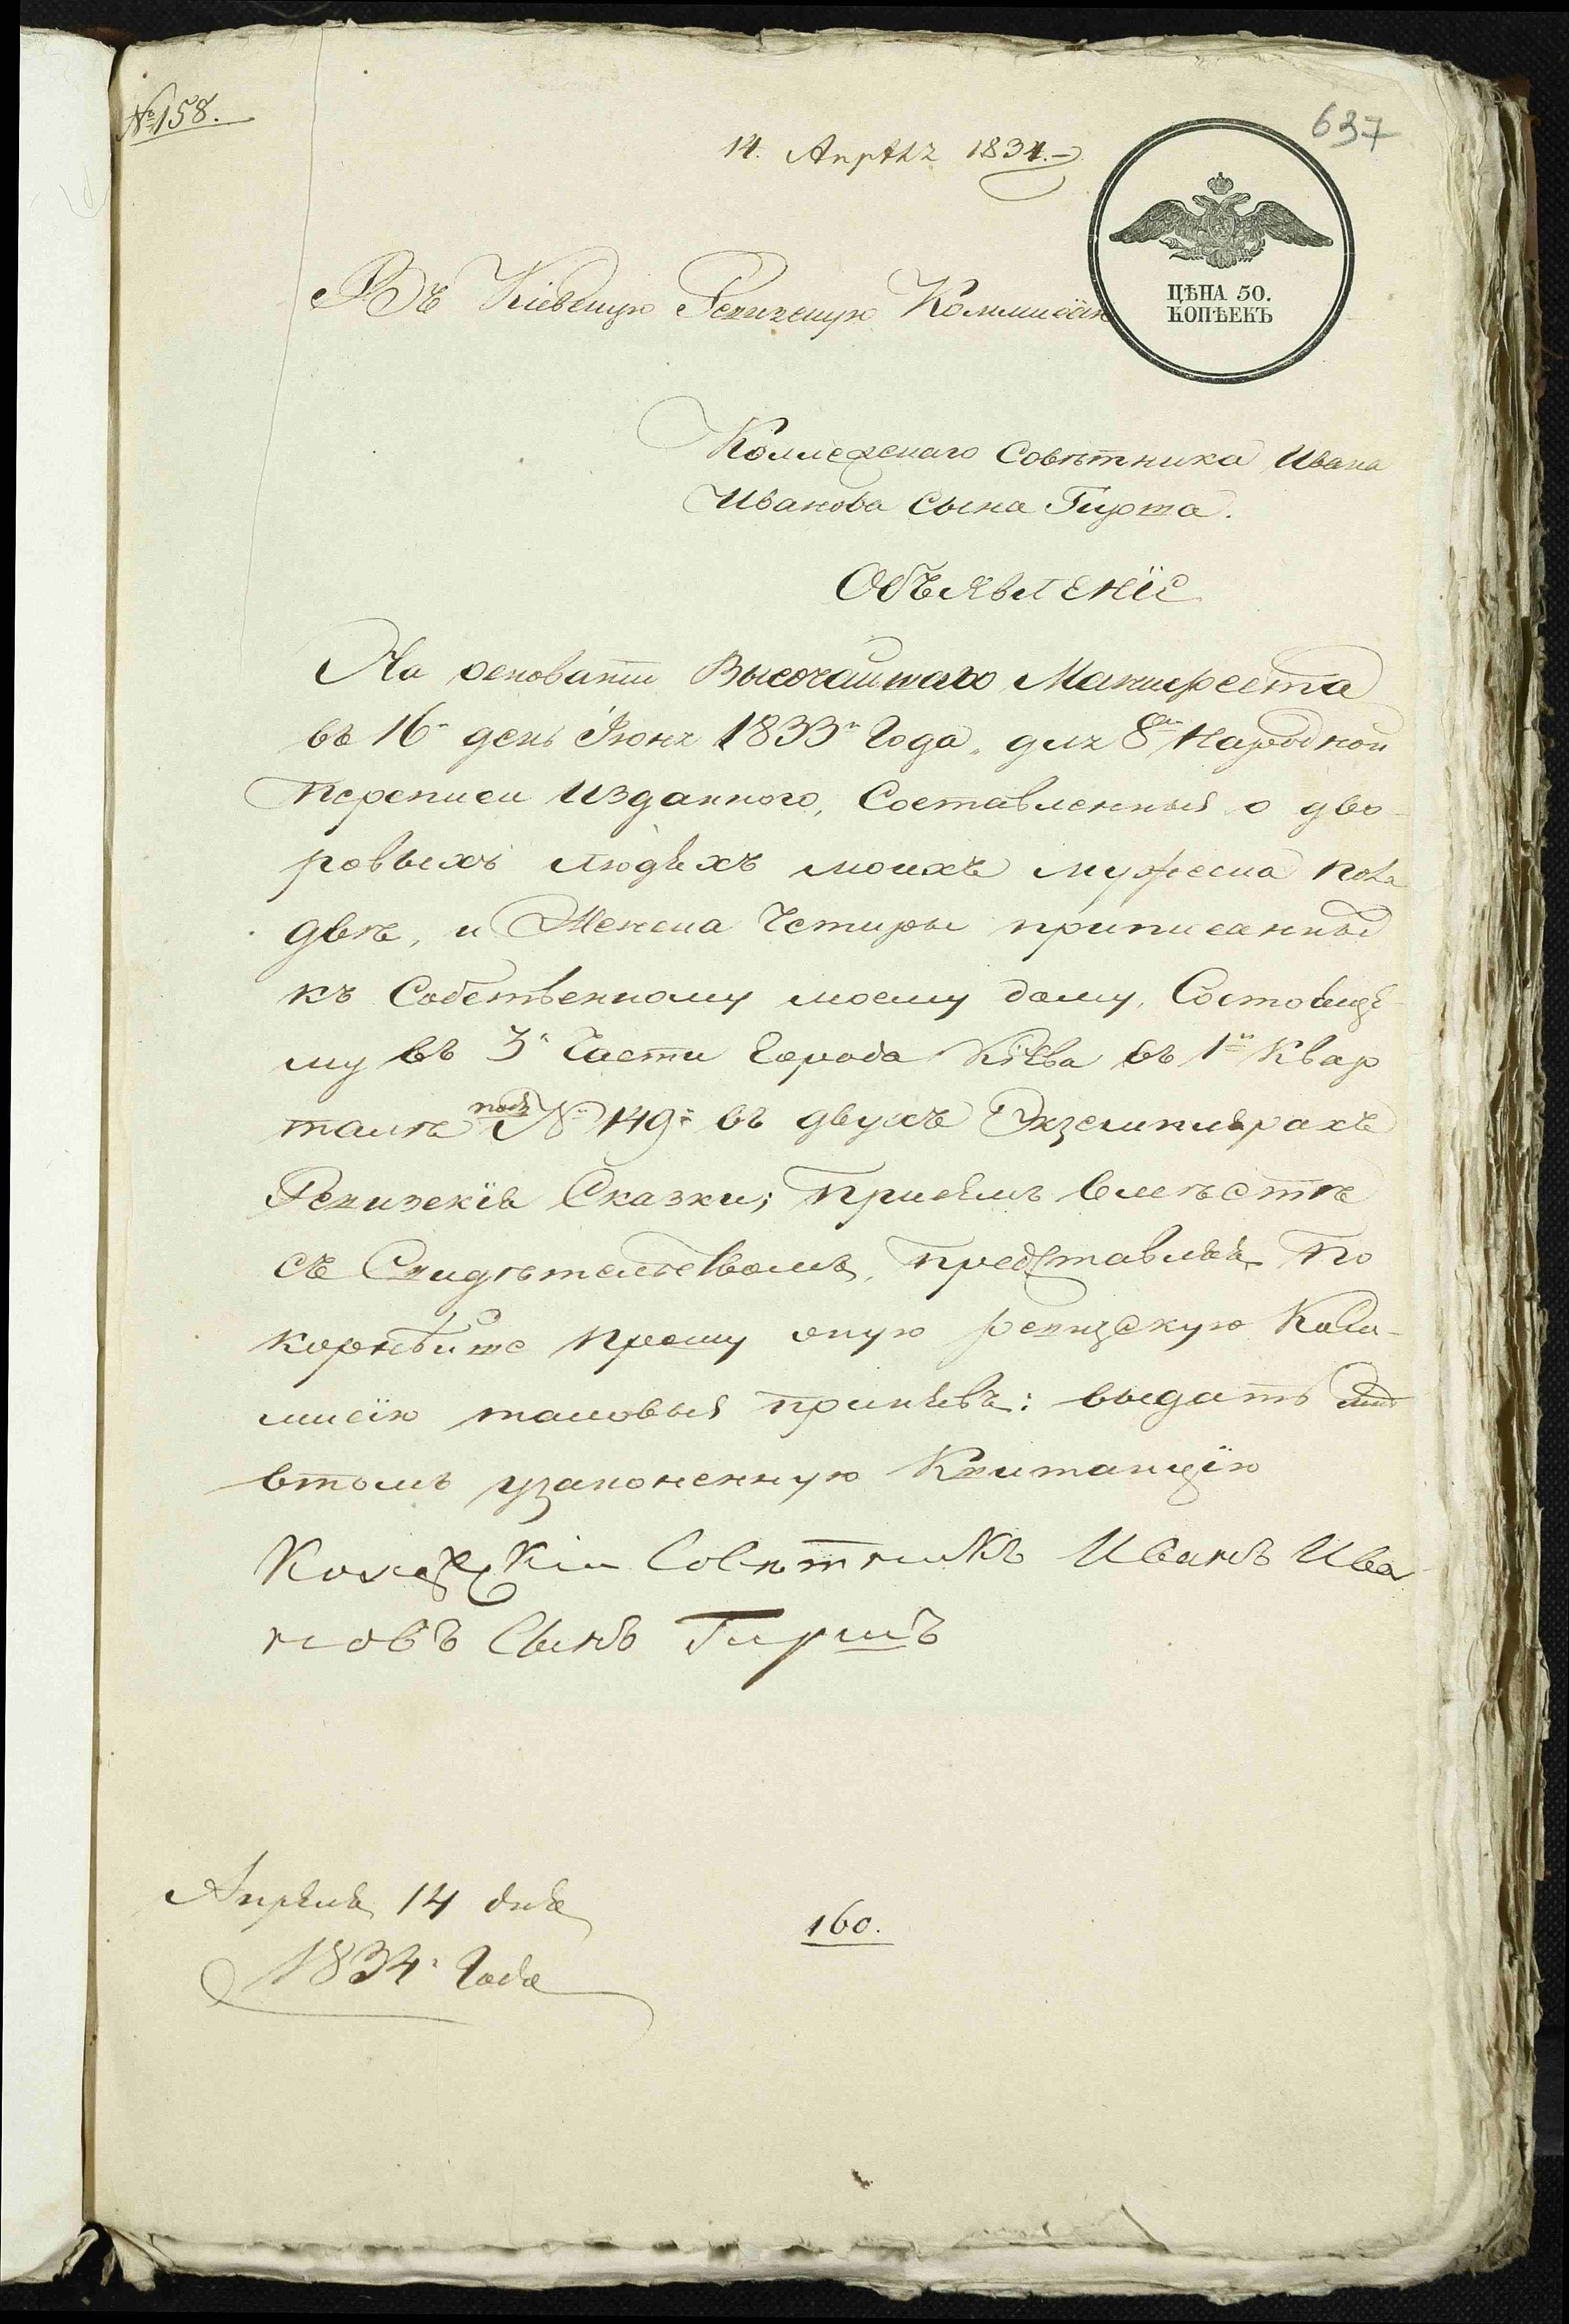 № 158.
637
14. Апрѣля 1834.
ЦѢНА 50.
КОПѢЕКЪ
Въ Кіевскую Ревизскую Коммисію
Коллежскаго Совѣтника Ивана
Иванова Сына Гирша.
Объявленіе
На основаніи Высочайшаго Манифеста
въ 16 день Іюня 1833 года, для 8й Народной
Переписи Изданного, Составленныя о дво-
ровыхъ людяхъ моихъ мужеска пола
двѣ, и Женска Четыры приписанныя
къ Собственному моему дому, Состояще-
му въ 3й Части Города Кіева въ 1м Квар
талѣ подъ № 149м въ двухъ Экземплярахъ
Ревизскія Сказки; при семъ вмѣстѣ
съ Свидѣтельствомъ, представляя по
корнѣйше прошу оную ревизскую Ком-
мисію таковыя принявъ: выдать мнѣ
втомъ узаконенную Квитанцію
Колежскій Совѣтникъ Иванъ Ива
новъ Сынъ Гиршъ
Апрѣля 14 дня
1834 Года
160.